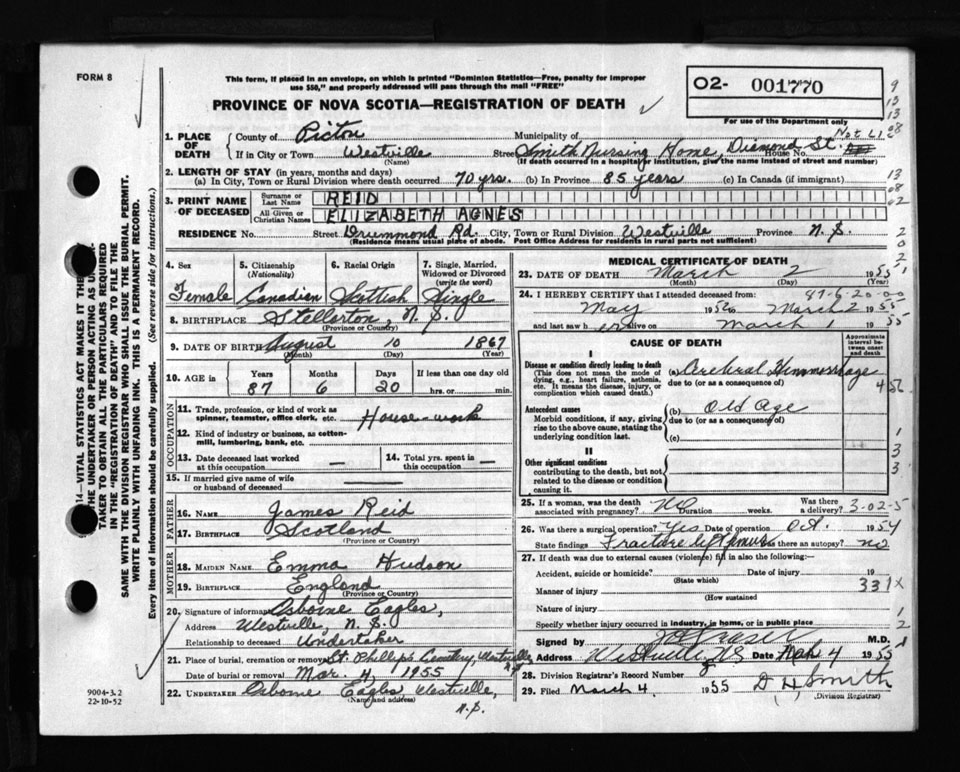 FORM 8
This form, if placed in an envelope, on which is printed "Dominion Statistics—Free, penalty for improper
use $50," and properly addressed will pass through the mail "FREE"
O2- 001770
For use of the Department only
PROVINCE OF NOVA SCOTIA—REGISTRATION OF DEATH
1. PLACE OF DEATH
County of Pictou Municipality of
If in City or Town Westville (Name) Street Smith Nursing Home, Diamond St. House No.
(If death occurred in a hospital or institution, give the name instead of street and number)
2. LENGTH OF STAY (in years, months and days)
(a) In City, Town or Rural Division where death occurred 70 yrs. (b) In Province 85 years (c) In Canada (if immigrant)
3. PRINT NAME OF DECEASED
Surname or Last Name REID
All Given or Christian Names ELIZABETH AGNES
RESIDENCE No. Street Drummond Rd. City, Town or Rural Division Westville Province N.S.
(Residence means usual place of abode. Post Office Address for residents in rural parts not sufficient)
4. Sex Female
5. Citizenship (Nationality) Canadian
6. Racial Origin Scottish
7. Single, Married, Widowed or Divorced (write the word) Single
8. BIRTHPLACE Stellarton, N.S.
(Province or Country)
9. DATE OF BIRTH August 10 1867
(Month) (Day) (Year)
10. AGE in Years 87 Months 6 Days 20 If less than one day old
hrs. or min.
OCCUPATION
11. Trade, profession, or kind of work as spinner, teamster, office clerk, etc. House-work
12. Kind of industry or business, as cotton-mill, lumbering, bank, etc.
13. Date deceased last worked at this occupation —
14. Total yrs. spent in this occupation —
15. If married give name of wife or husband of deceased
FATHER
16. Name James Reid
17. Birthplace Scotland
(Province or Country)
MOTHER
18. MAIDEN NAME Emma Hudson
19. BIRTHPLACE England
(Province or Country)
20. Signature of informant Osborne Eagles,
Address Westville, N.S.
Relationship to deceased Undertaker
21. Place of burial, cremation or removal St. Phillip's Cemetery, Westville
Date of burial or removal Mar. 4, 1955
22. UNDERTAKER Osborne Eagles, Westville,
(Name and address)
N.S.
MEDICAL CERTIFICATE OF DEATH
23. DATE OF DEATH March 2 1955
(Month) (Day)
87-6-20-00
24. I HEREBY CERTIFY that I attended deceased from:
May to March 2 1955
and last saw her alive on March 1 1955
CAUSE OF DEATH
Approximate interval between onset and death
I
Disease or condition directly leading to death
(This does not mean the mode of dying, e.g., heart failure, asthenia, etc. It means the disease, injury, or complication which caused death.)
(a) Cerebral Hemmorrhage
due to (or as a consequence of)
Antecedent causes
Morbid conditions, if any, giving rise to the above cause, stating the underlying condition last.
(b) Old Age
due to (or as a consequence of)
(c)
II
Other significant conditions
contributing to the death, but not related to the disease or condition causing it.
25. If a woman, was the death associated with pregnancy? No Duration weeks. Was there a delivery?
3-02-5
26. Was there a surgical operation? Yes Date of operation Oct. 1954
State findings Fracture Was there an autopsy? no
27. If death was due to external causes (violence) fill in also the following:
Accident, suicide or homicide? Date of injury 19
(State which)
Manner of injury 331X
(How sustained
Nature of injury
Specify whether injury occurred in industry, in home, or in public place
Signed by M.D.
Address Westville, N.S. Date Mch 4 1955
28. Division Registrar's Record Number
29. Filed March 4, 1955 D. H. Smith
(Division Registrar)
14—VITAL STATISTICS ACT MAKES IT THE
THE UNDERTAKER OR PERSON ACTING AS
TAKER TO OBTAIN ALL THE PARTICULARS REQUIRED
IN THE "REGISTRATION OF DEATH" AND TO FILE THE
SAME WITH THE DIVISION REGISTRAR WHO SHALL ISSUE THE BURIAL PERMIT.
WRITE PLAINLY WITH UNFADING INK. THIS IS A PERMANENT RECORD.
Every item of information should be carefully supplied. (See reverse side for instructions.)
9004-3.2
22-10-52